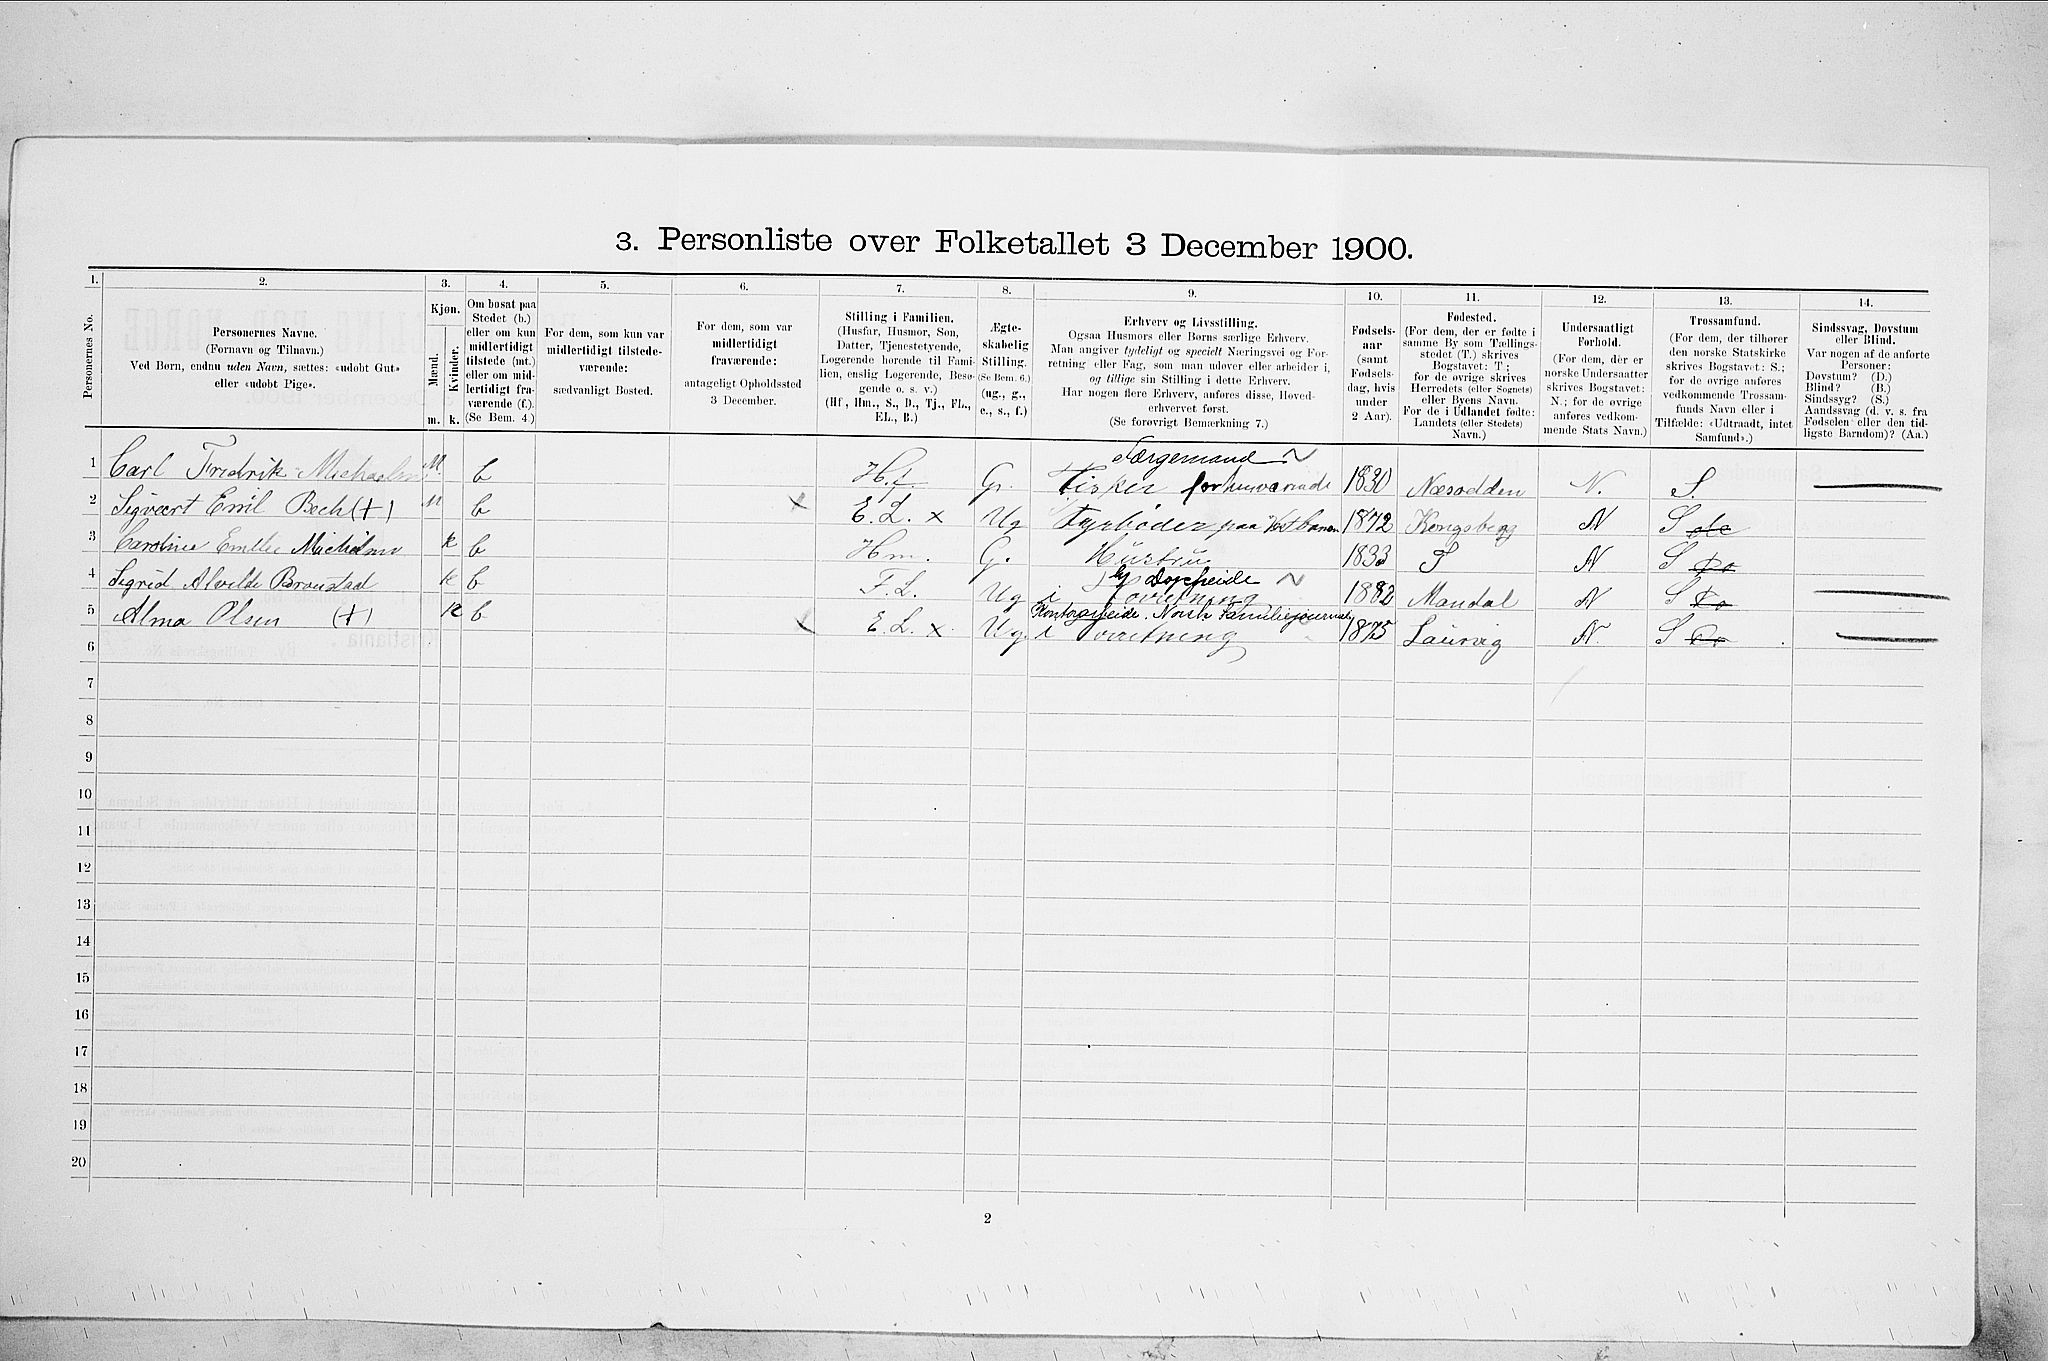 3. Personliste over Folketallet 3 December 1900.
1. 2. 3. 4. 5. 6. 7. 8. 9. 10. 11. 12. 13. 14.
Personernes No.
Personernes Navne.
(Fornavn og Tilnavn.)
Ved Børn, endnu uden Navn, sættes: «udøbt Gut»
eller «udøbt Pige».
Kjøn.
Mænd.
Kvinder.
m. k.
Om bosat paa
Stedet (b.)
eller om kun
midlertidigt
tilstede (mt.)
eller om mid-
lertidigt fra-
værende (f.).
(Se Bem. 4.)
For dem, som kun var
midlertidigt tilstede-
værende:
sædvanligt Bosted.
For dem, som var
midlertidigt
fraværende:
antageligt Opholdssted
3 December.
Stilling i Familien.
(Husfar, Husmor, Søn,
Datter, Tjenestetyende,
Logerende hørende til Fami-
lien, enslig Logerende, Besø-
gende o. s. v.)
(Hf., Hm., S., D., Tj., FL.,
EL., B.)
Ægte-
skabelig
Stilling.
(Se Bem. 6.)
(ug., g.,
e., s., f.)
Erhverv og Livsstilling.
Ogsaa Husmors eller Børns særlige Erhverv.
Man angiver tydeligt og specielt Næringsvei og For-
retning eller Fag, som man udøver eller arbeider i,
og tillige sin Stilling i dette Erhverv.
Har nogen flere Erhverv, anføres disse, Hoved-
erhvervet først.
(Se forøvrigt Bemærkning 7.)
Fødsels-
aar
(samt
Fødsels-
dag, hvis
under
2 Aar).
Fødested.
(For dem, der er fødte i
samme By som Tællings-
stedet (T.) skrives
Bogstavet: T;
for de øvrige skrives
Herredets (eller Sognets)
eller Byens Navn.
For de i Udlandet fødte:
Landets (eller Stedets)
Navn.)
Undersaatligt
Forhold.
(For dem, der er
norske Undersaatter
skrives Bogstavet:
N.; for de øvrige
anføres vedkom-
mende Stats Navn.)
Trossamfund.
(For dem, der tilhører
den norske Statskirke
skrives Bogstavet: S.;
for de øvrige anføres
vedkommende Trossam-
funds Navn eller i
Tilfælde: «Udtraadt, intet
Samfund».)
Sindssvag, Døvstum
eller Blind.
Var nogen af de anførte
Personer:
Døvstum? (D.)
Blind? (B.)
Sindssyg? (S.)
Aandssvag (d. v. s. fra
Fødselen eller den tid-
ligste Barndom)? (Aa.)
Færgemand
1 Carl Fredrik M b H.f. G. Fisker forhenværende 1830 Næsodden N. S.
2 Sigvart Emil Bech (+) M b E.L. x Ug Fyrbøder paa Vestbanen 1872 Kongsberg N S do
3 Caroline Emilie k b Hm. G. Hustru 1833 T N S Do
4 Sigrid Alvilde k b F.L. Ug i Forretning 1882 Mandal N S Do
Kontorarbeide. Norsk Familiejournal
5 Alma Olsen (+) K b E.L. x. Ug. i Forretning 1875 Laurvig N. S Do
6
7
8
9
10
11
12
13
14
15
16
17
18
19
20
2